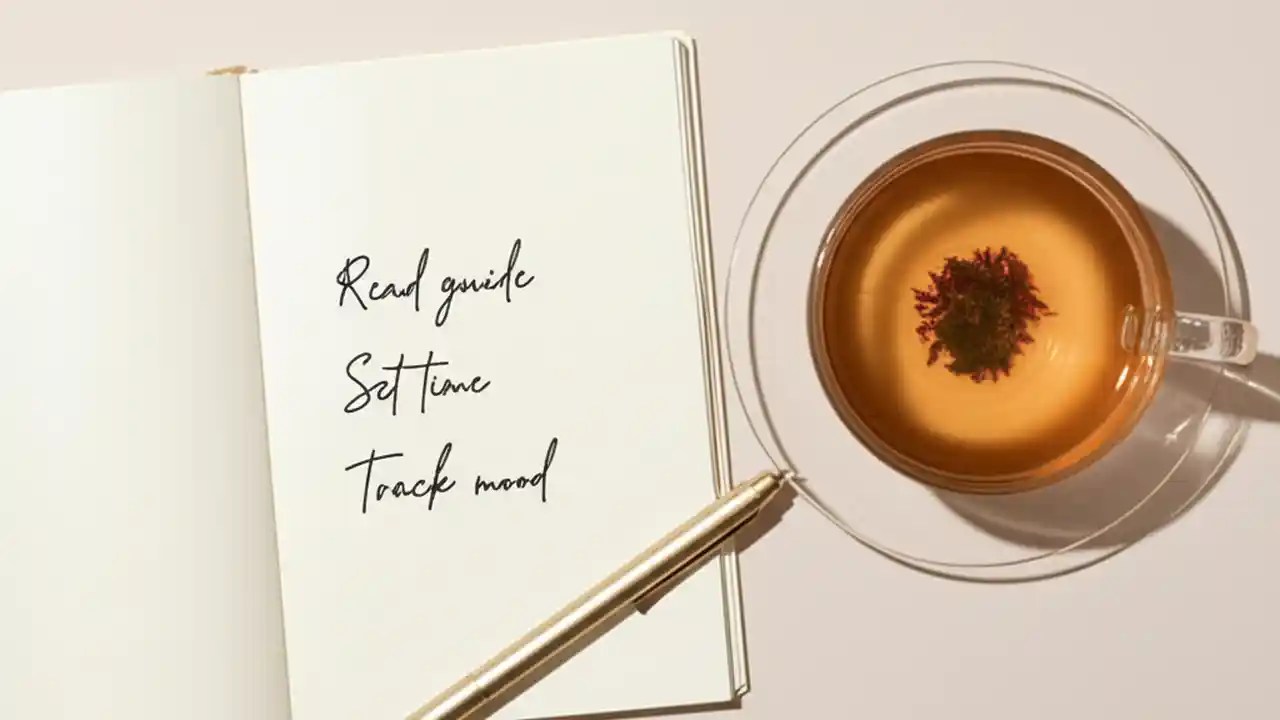 Read guide
Set time
Track mood